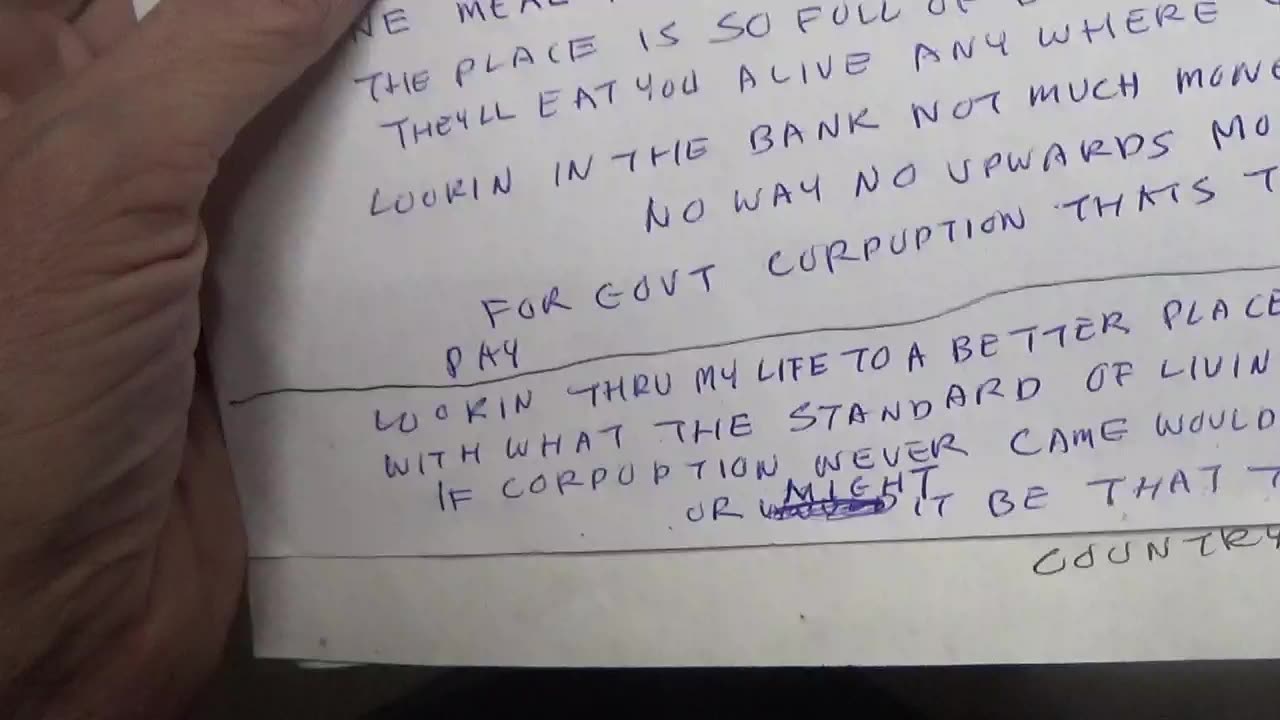 NE MEAL
THE PLACE IS SO FULL OF
THEYLL EAT YOU ALIVE ANY WHERE
LOOKIN IN THE BANK NOT MUCH MONE
NO WAY NO UPWARDS MO
FOR GOVT CORPUPTION THATS T
PAY
LOOKIN THRU MY LIFE TO A BETTER PLACE
WITH WHAT THE STANDARD OF LIVIN
IF CORPUPTION NEVER CAME WOULD
OR MIGHT IT BE THAT T
COUNTRY